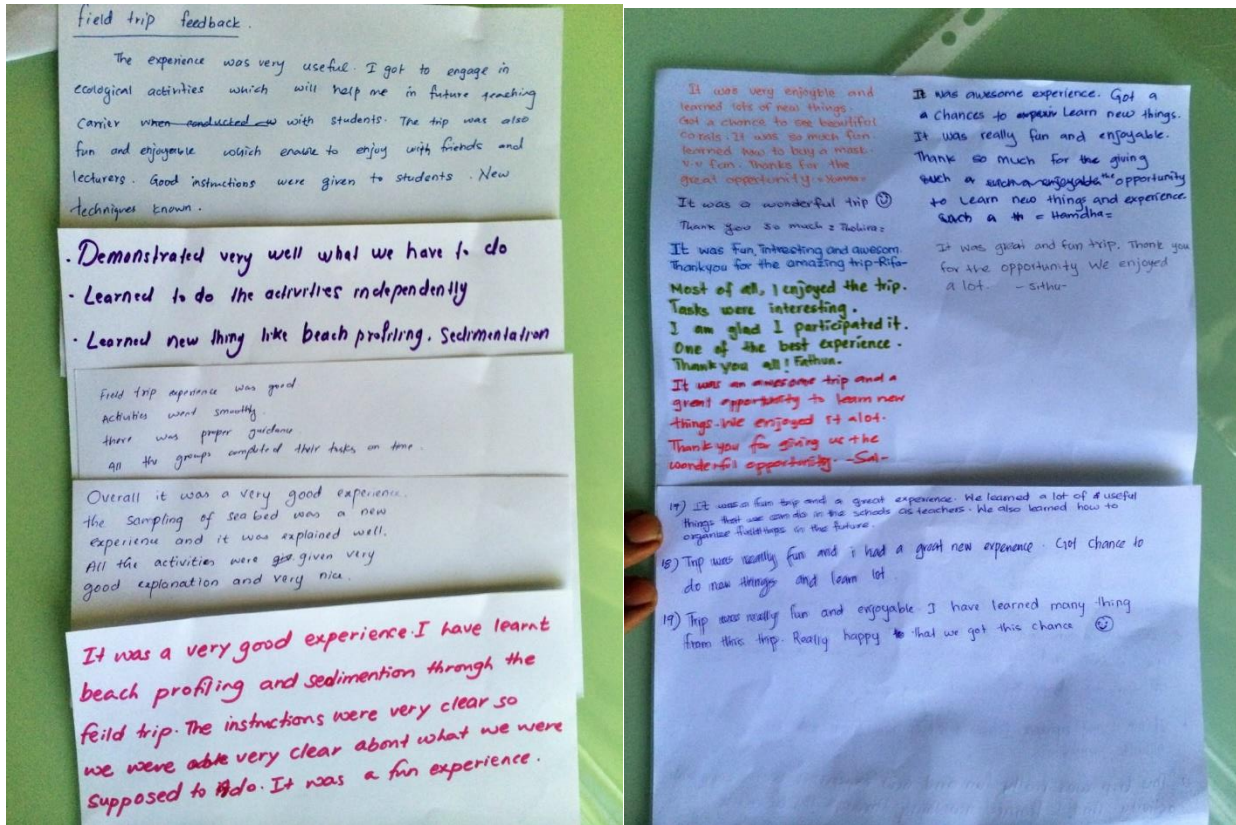 field trip feedback.
The experience was very useful. I got to engage in
ecological activities which will help me in future teaching
carrier when conducted w with students. The trip was also
fun and enjoyerble which enable to enjoy with friends and
lecturers. Good instructions were given to students. New
techniques known.
· Demonstrated very well what we have to do
· Learned to do the activities independently
· Learned new thing like beach profiling, Sedimentation
Field trip experience was good
Activities went smoothly.
there was proper guidance.
All the groups completed their tasks on time.
Overall it was a very good experience.
the sampling of sea bed was a new
experience and it was explained well.
All the activities were give given very
good explanation and very nice.
It was a very good experience. I have learnt
beach profiling and sedimention through the
feild trip. The instuctions were very clear so
we were able very clear about what we were
supposed to do. It was a fun experience.
It was very enjoyble and
learned lots of new things.
Got a chance to see beautiful
corals. It was so much fun.
learned how to buy a mask.
v.v fun. Thanks for the
great oppertunity.
It was a wonderful trip ☺
Thank you so much = Thohira=
It was fun, intresting and awesom.
Thankyou for the amazing trip-Rifa-
Most of all, I enjoyed the trip.
Tasks were interesting.
I am glad I participated it.
One of the best experience.
Thank you all! Fathun.
It was an awesome trip and a
great oppertunity to learn new
things. We enjoyed it alot.
Thank you for giving us the
wonderful opportunity. -Sal-
It was awesome experience. Got a
a chances to experin Learn new things.
It was really fun and enjoyable.
Thank so much for the giving
such a such a enjoyable the opportunity
to Learn new things and experience.
Such a th = Hamdha=
It was great and fun trip. Thank you
for the opportunity We enjoyed
a lot. - Sithu-
17) It was a fun trip and a great experience. We learned a lot of useful
things that we can do in the schools as teachers. We also learned how to
organize fieldtrips in the future.
18) Trip was really fun and i had a great new experience. Got chance to
do new things and learn lot
19) Trip was really fun and enjoyable. I have learned many thing
from this trip. Really happy that we got this chance ☺